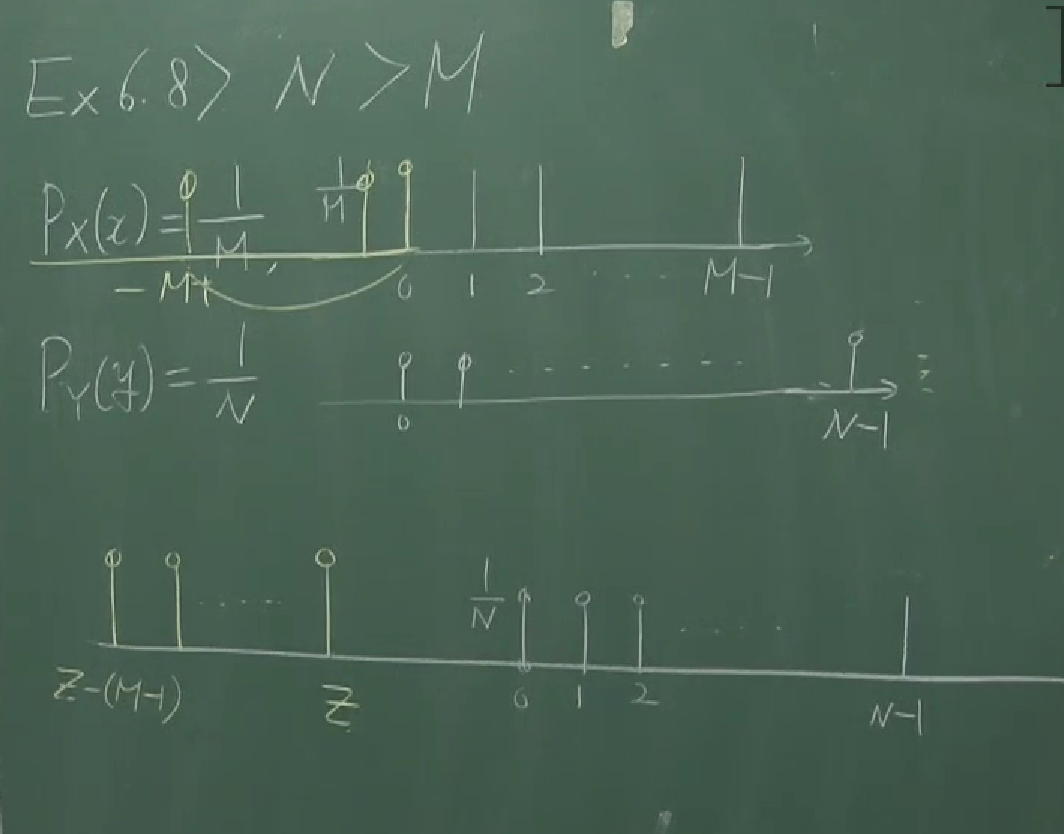 Ex 6.8> N > M
P_X(x) = 1/M,
1/M
-M+1 0 1 2 ..... M-1
P_Y(y) = 1/N
0 N-1
1/N
Z-(M-1) Z 0 1 2 N-1